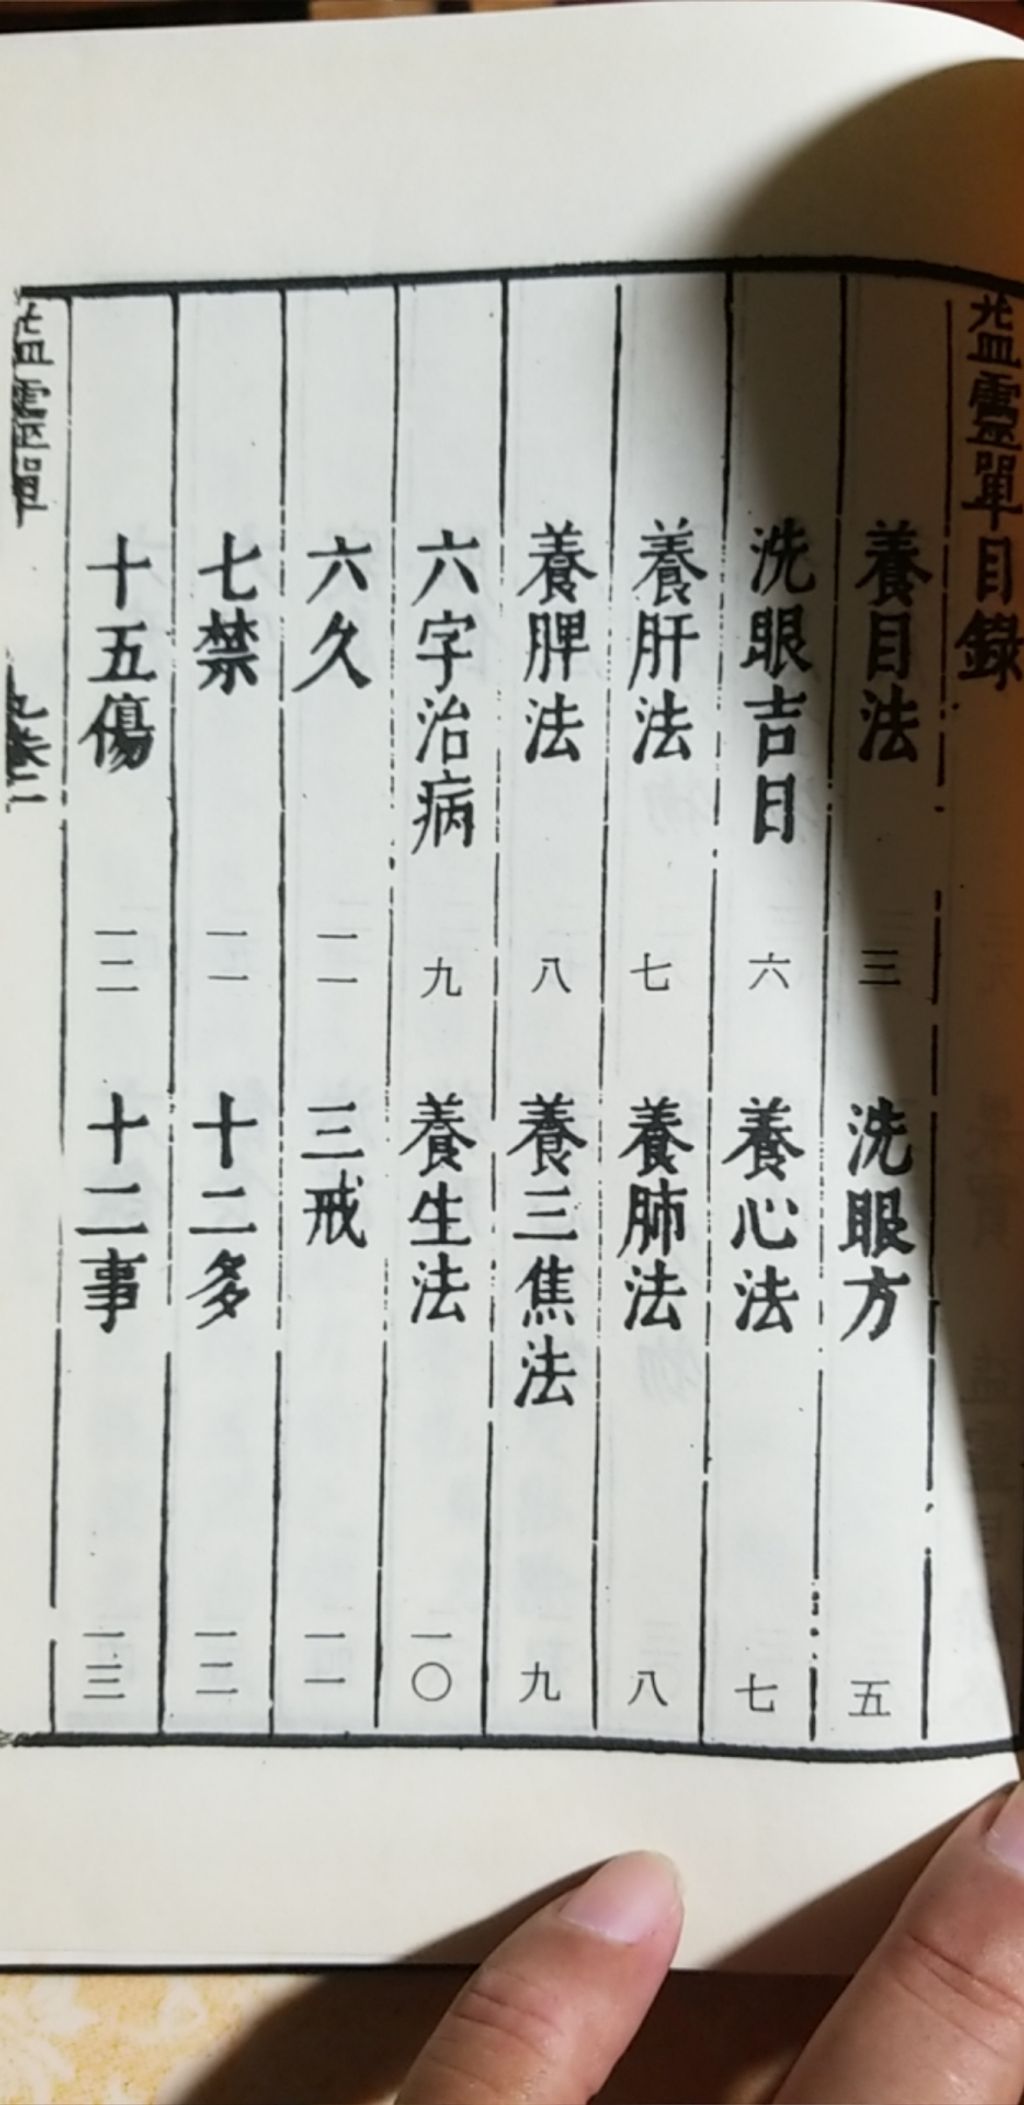 盇靈單目錄
養目法 三 洗眼方 五
洗眼吉日 六 養心法 七
養肝法 七 養肺法 八
養脾法 八 養三焦法 九
六字治病 九 養生法 一〇
六久 一一 三戒 一一
七禁 一一 十二多 一二
十五傷 一二 十二事 一三
靈單